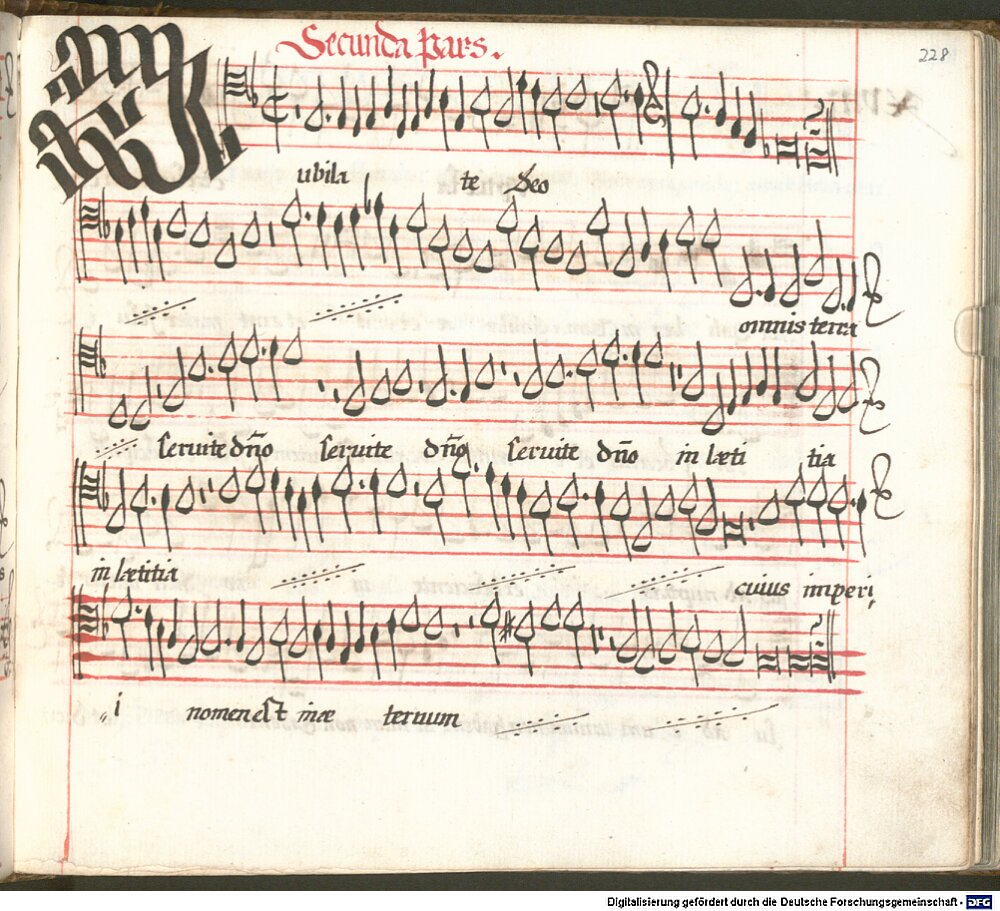 Secunda Pars.
228
Iubila te Deo
omnis terra
servite dño servite dño servite dño in læti tia
in lætitia cuius imperi,
,,i nomen est in æ ternum
Digitalisierung gefördert durch die Deutsche Forschungsgemeinschaft - DFG